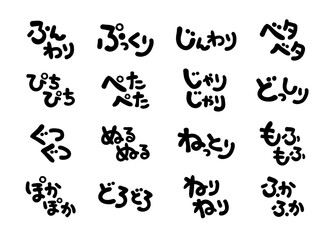 ふん
わり
ぷっくり
じんわり
ベタ
ベタ
ぴち
ぴち
ぺた
ぺた
じゃり
じゃり
どっしり
ぐつ
ぐつ
ぬる
ぬる
ねっとり
もふ
もふ
ぽか
ぽか
どろどろ
ねり
ねり
ふか
ふか